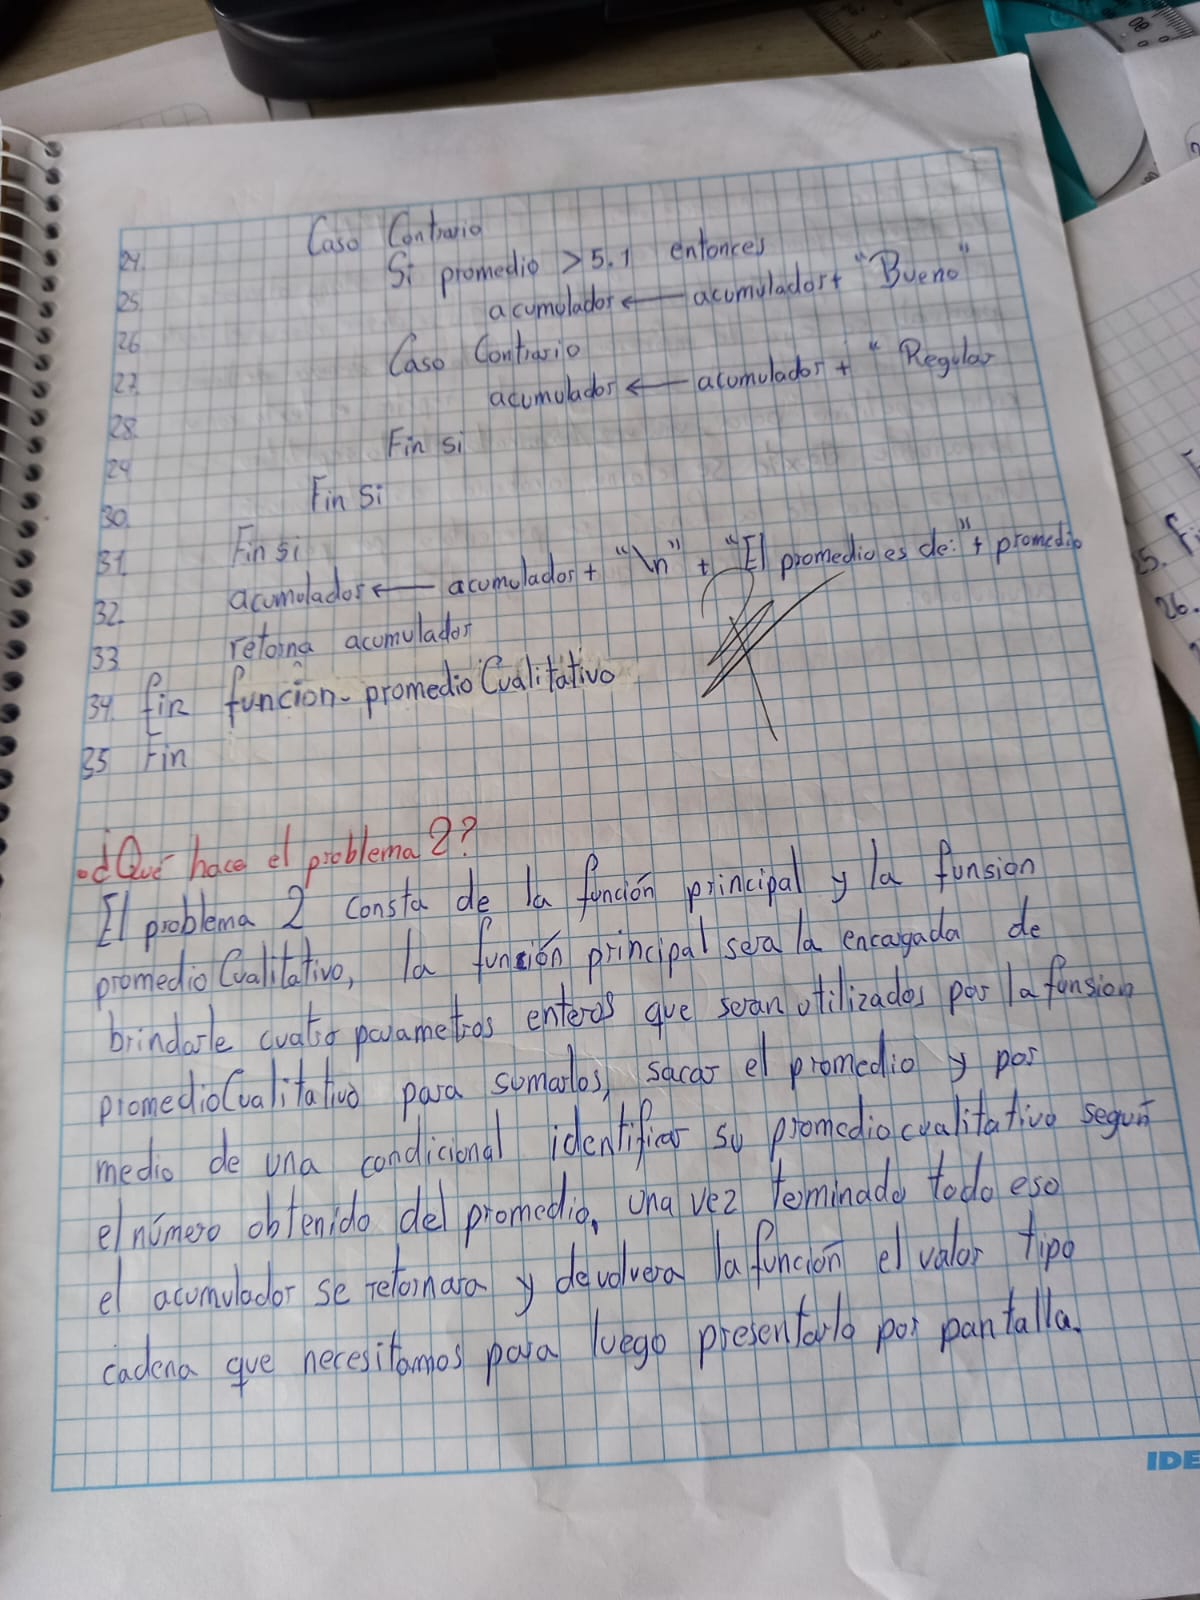 24. Caso Contrario
Si promedio > 5.1 entonces
25. acumulador ← acumulador + "Bueno"
26 Caso Contrario
27. acumulador ← acumulador + " Regular
28. Fin si
29
30. Fin Si
31. Fin si
32. acumulador ← acumulador + "\n" + "El promedio es de:" + promedio
33 retorna acumulador
34. fin funcion-promedioCualitativo
35 Fin
• ¿Qué hace el problema 2?
El problema 2 consta de la función principal y la funsion
promedioCualitativo, la función principal sera la encargada de
brindarle cuatro parametros enteros que seran utilizados por la funsion
promedioCualitativo para sumarlos, sacar el promedio y por
medio de una condicional identificar su promedio cualitativo según
el número obtenido del promedio, una vez terminado todo eso
el acumulador se retornara y devolvera la función el valor tipo
cadena que necesitamos para luego presentarlo por pantalla.
IDE
5. Fi
26.